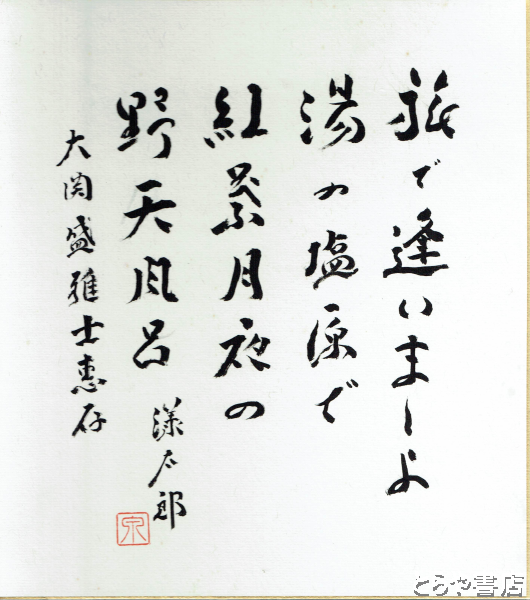 旅で逢いましよ
湯の塩原で
紅葉月夜の
野天風呂
漾太郎
大関盛雅士恵存
とらや書店